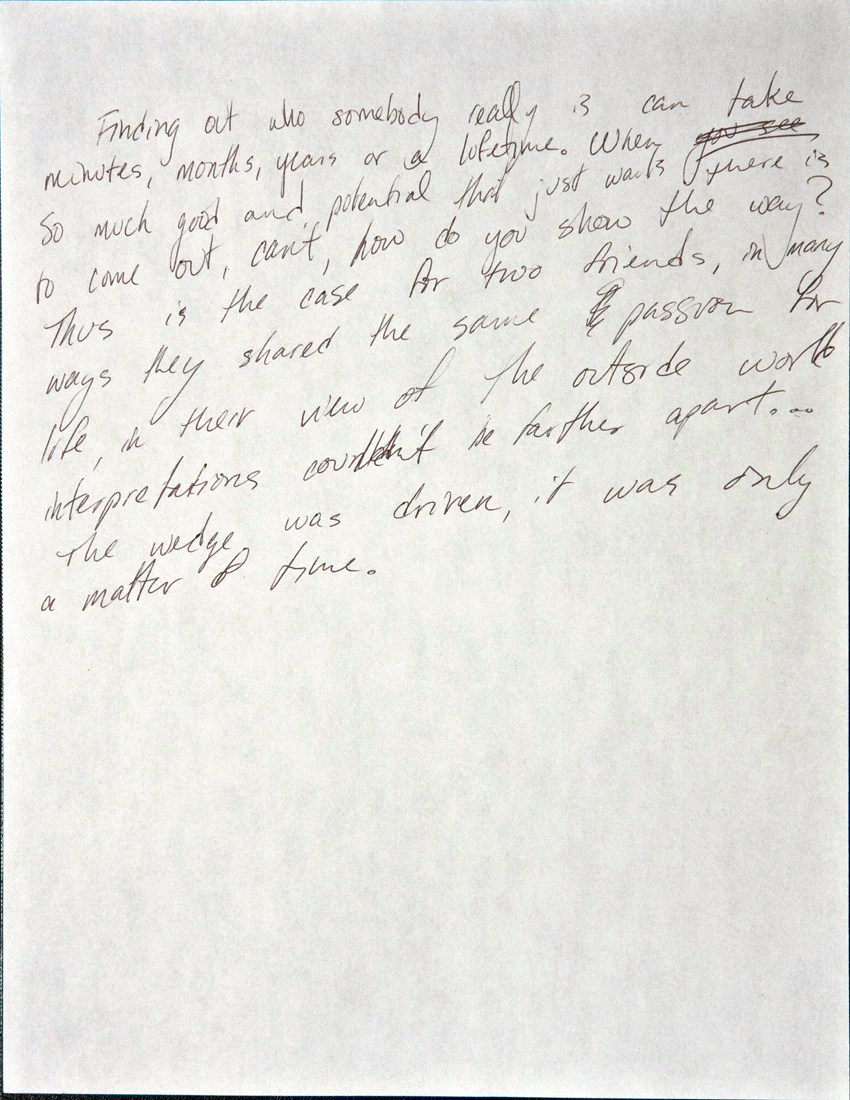 Finding out who somebody really is can take
minutes, months, years or a lifetime. When there is
so much good and potential that just wants
to come out, can't, how do you show the way?
Thus is the case for two friends, in many
ways they shared the same passion for
life, in their view of the outside world
interpretations couldn't be farther apart...
The wedge was driven, it was only
a matter of time.